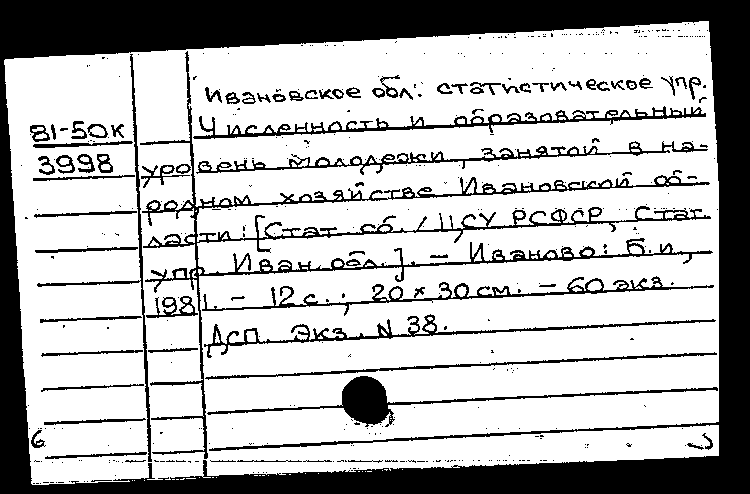 Ивановское обл. статистическое упр.
81-50к Численность и образовательный
3998 уровень молодежи, занятой в на-
родном хозяйстве Ивановской об-
ласти: [Стат. сб. / ЦСУ РСФСР, Стат.
упр. Иван. обл.]. - Иваново: Б.и.,
1981. - 12 с.; 20 × 30 см. - 60 экз.
Дсп. Экз. N 38.
6